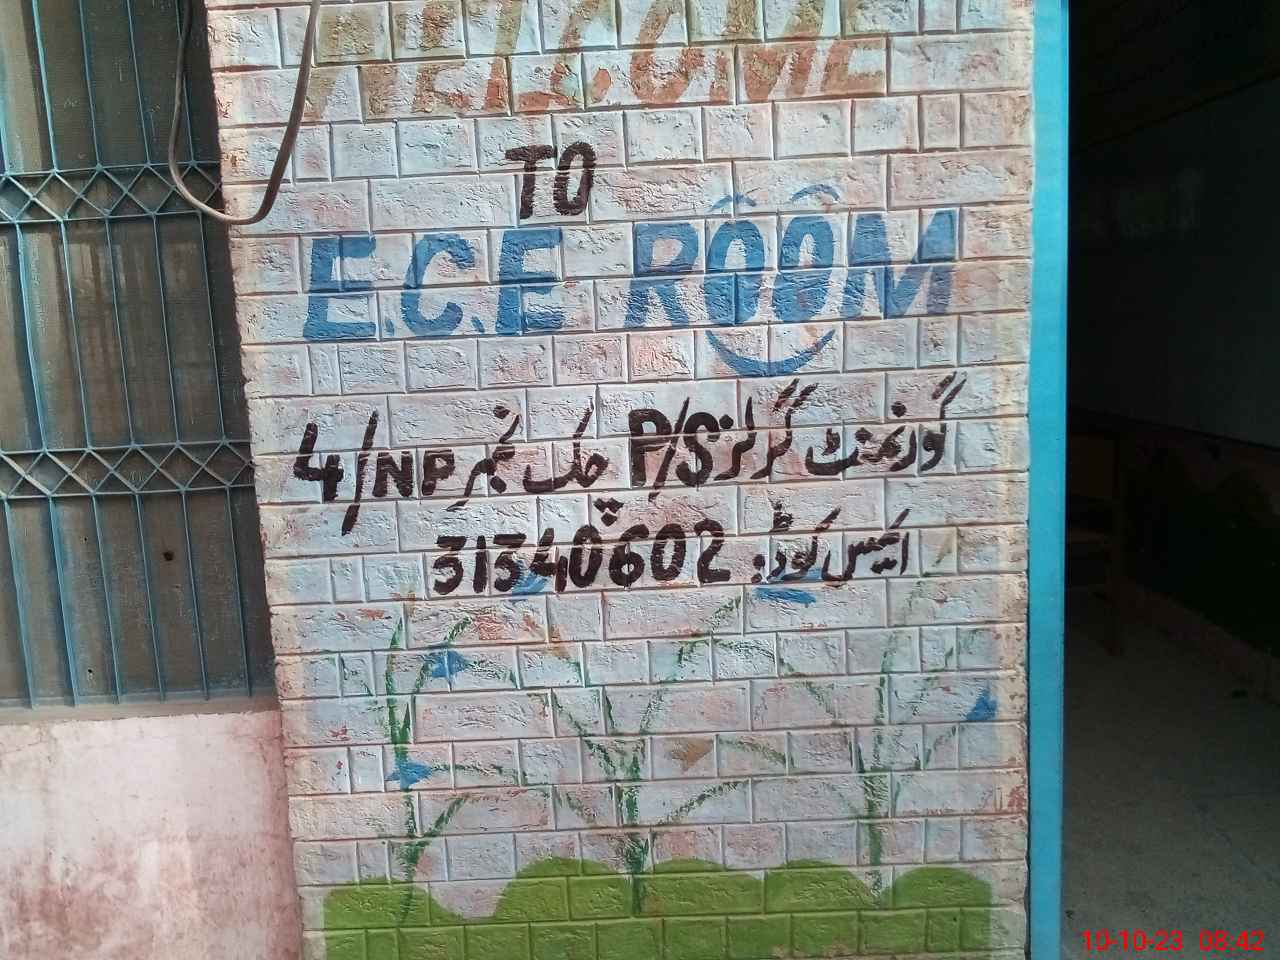 WELCOME
TO
E.C.E ROOM
گورنمنٹ گرلز P/S چک نمبر 4/NP
ایمس کوڈ: 31340602
10-10-23 08:42